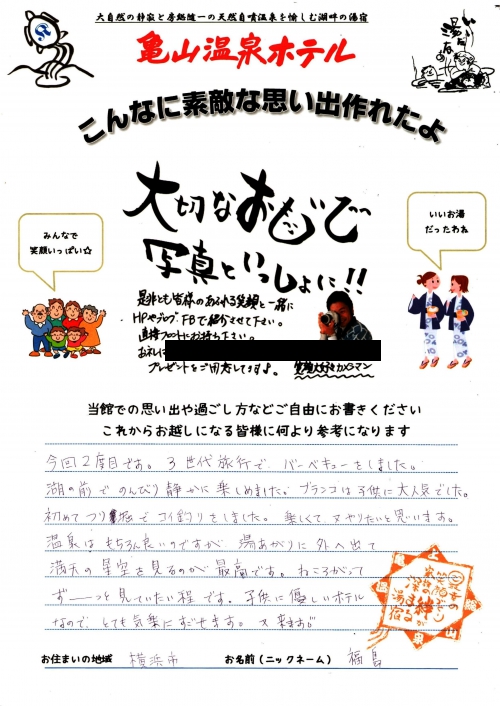 大自然の静寂と房総随一の天然自噴温泉を愉しむ湖畔の湯宿
亀山温泉ホテル
こんなに素敵な思い出作れたよ
大切なおもいで
写真といっしょに!!
みんなで
笑顔いっぱい☆
いいお湯
だったわね
是非とも皆様のあふれる笑顔と一緒に
HPやブログ、FBで紹介させて下さい。
直接フロントにお持ち下さい。
お礼に
プレゼントをご用意してます♪。
当館での思い出や過ごし方などご自由にお書きください
これからお越しになる皆様に何より参考になります
今回2度目です。3世代旅行で、バーベキューをしました。
湖の前でのんびり静かに楽しめました。ブランコは子供に大人気でした。
初めてつり堀でコイ釣りをしました。楽しくて又やりたいと思います。
温泉はもちろん良いのですが、湯あがりに外へ出て
満天の星空を見るのが最高です。ねころがって
ずーーっと見ていたい程です。子供に優しいホテル
なので、とても気楽にすごせます。又来ます。
お住まいの地域 横浜市 お名前(ニックネーム) 福島